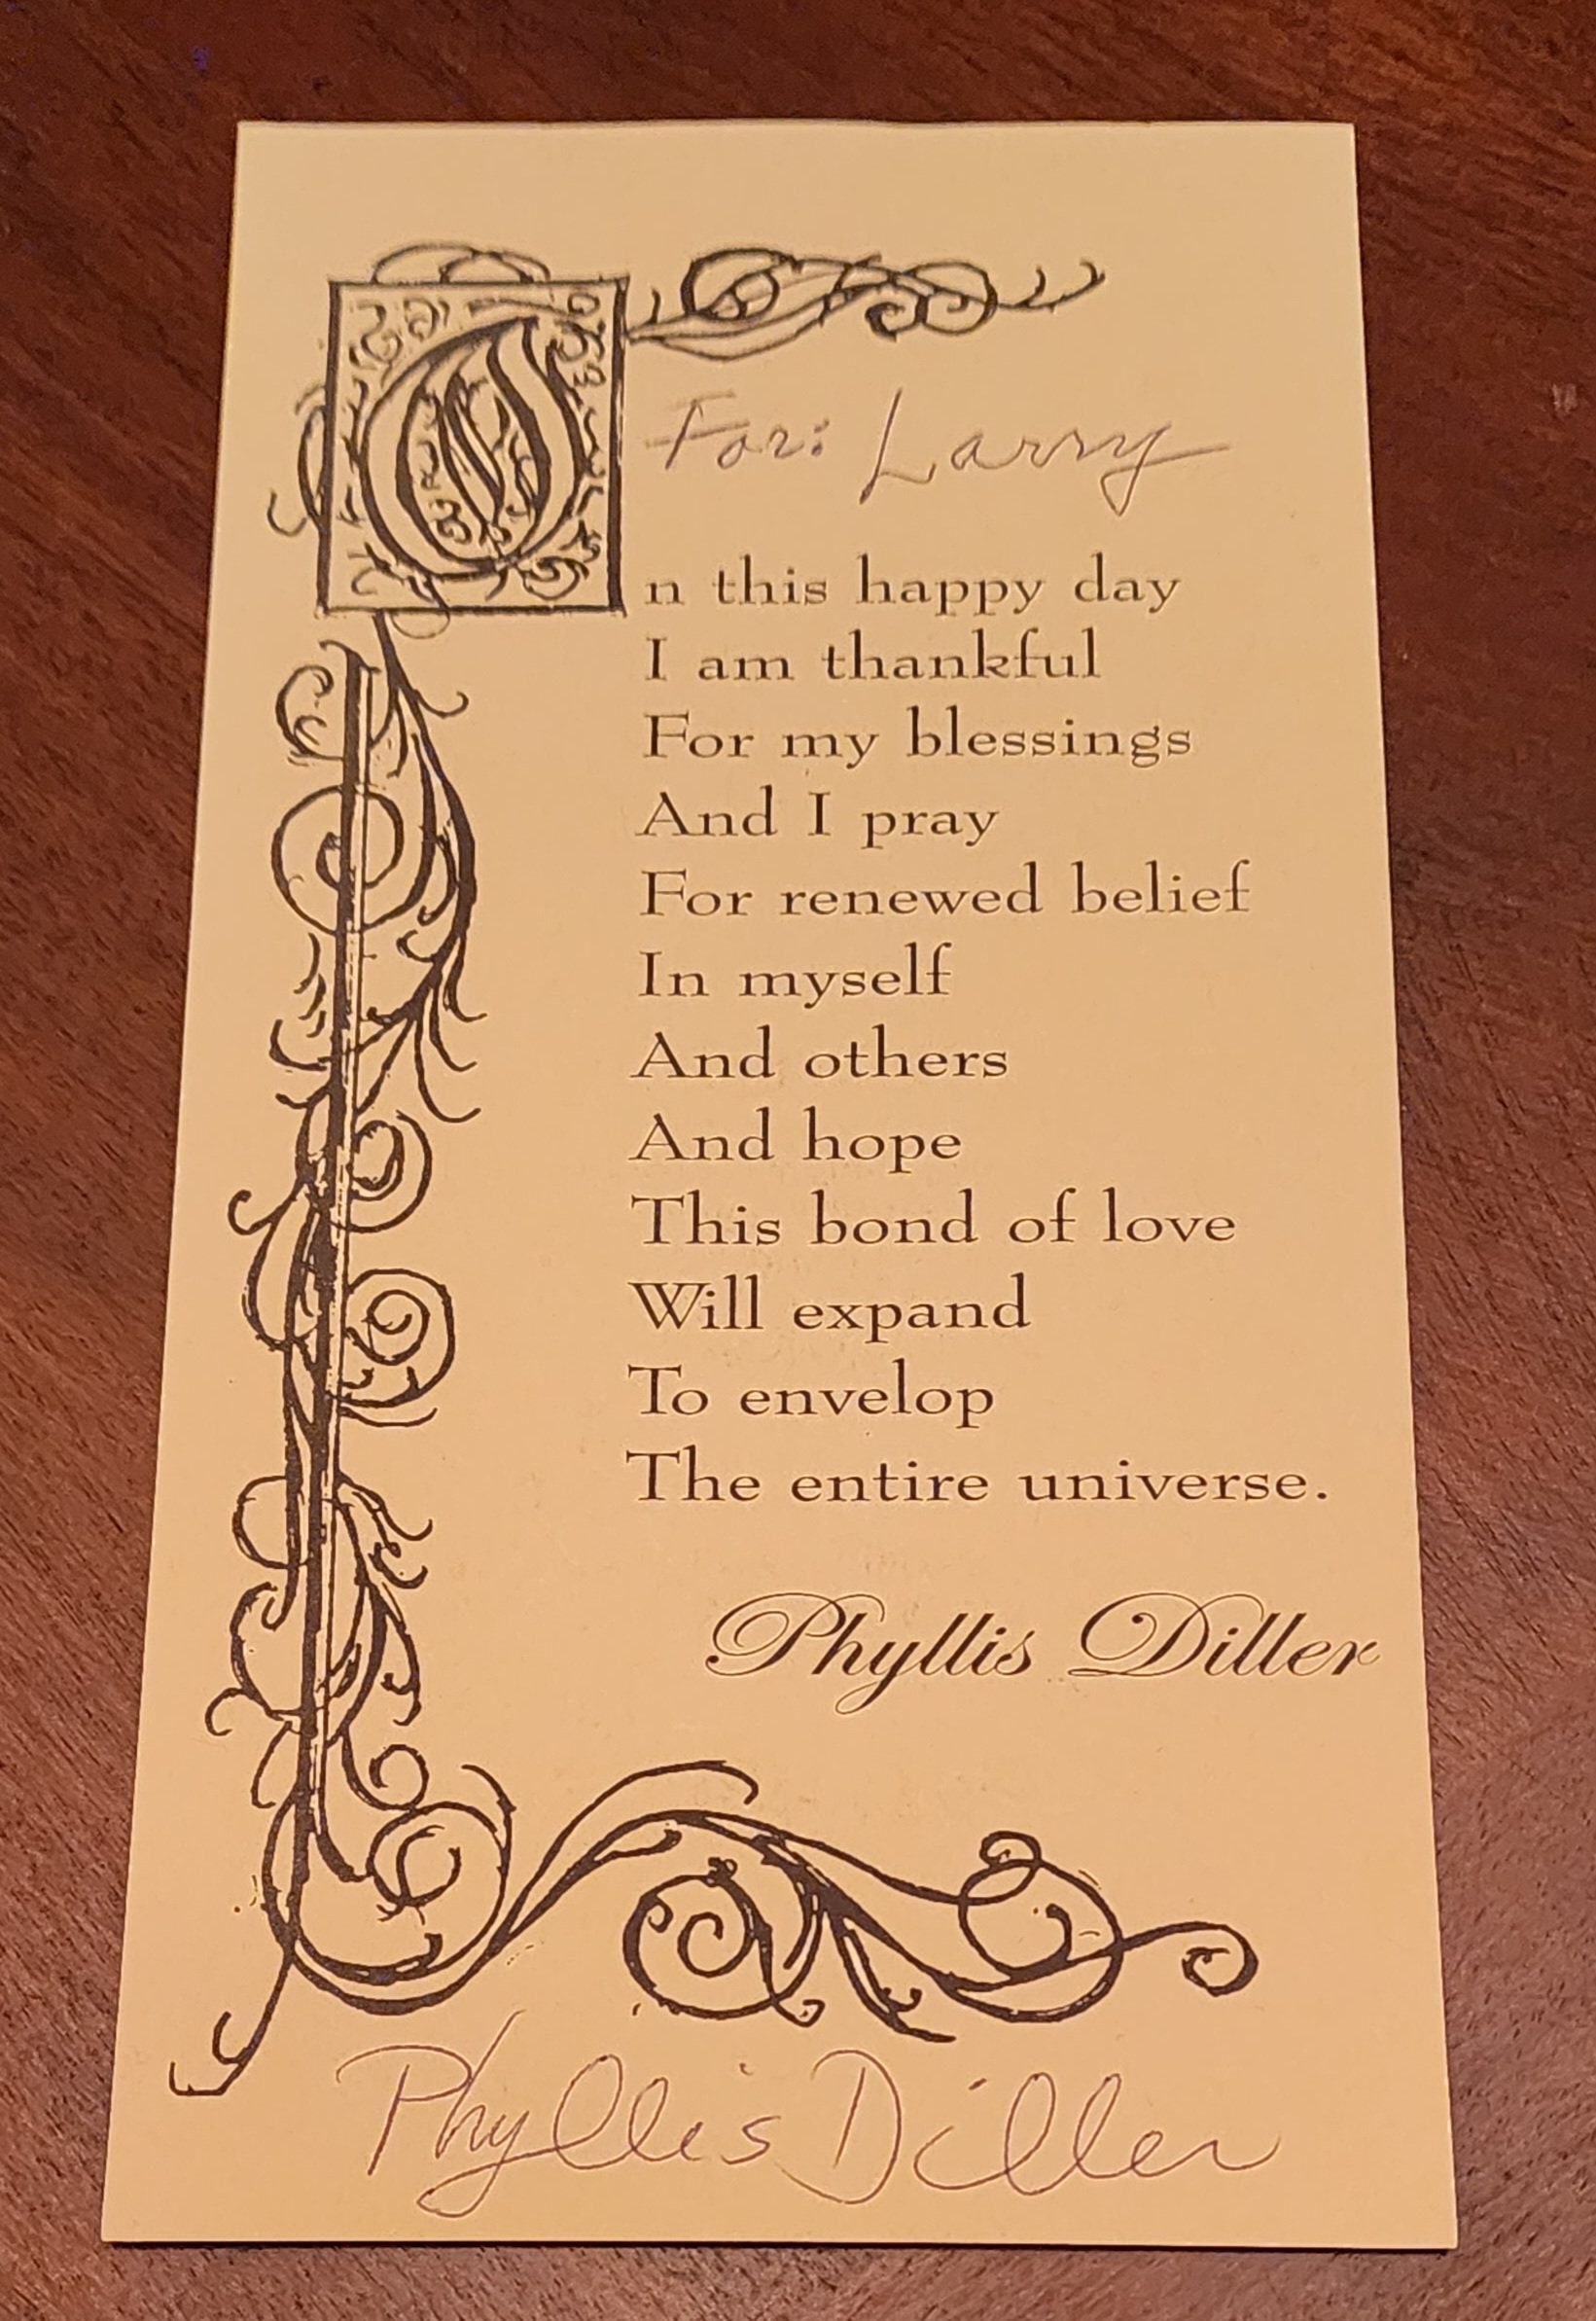 For: Larry
On this happy day
I am thankful
For my blessings
And I pray
For renewed belief
In myself
And others
And hope
This bond of love
Will expand
To envelop
The entire universe.
Phyllis Diller
Phyllis Diller